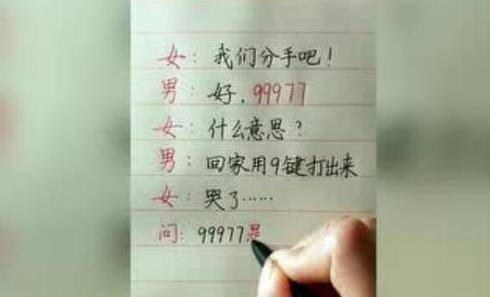 女：我们分手吧！
男：好，99977
女：什么意思？
男：回家用9键打出来
女：哭了……
问：99977是